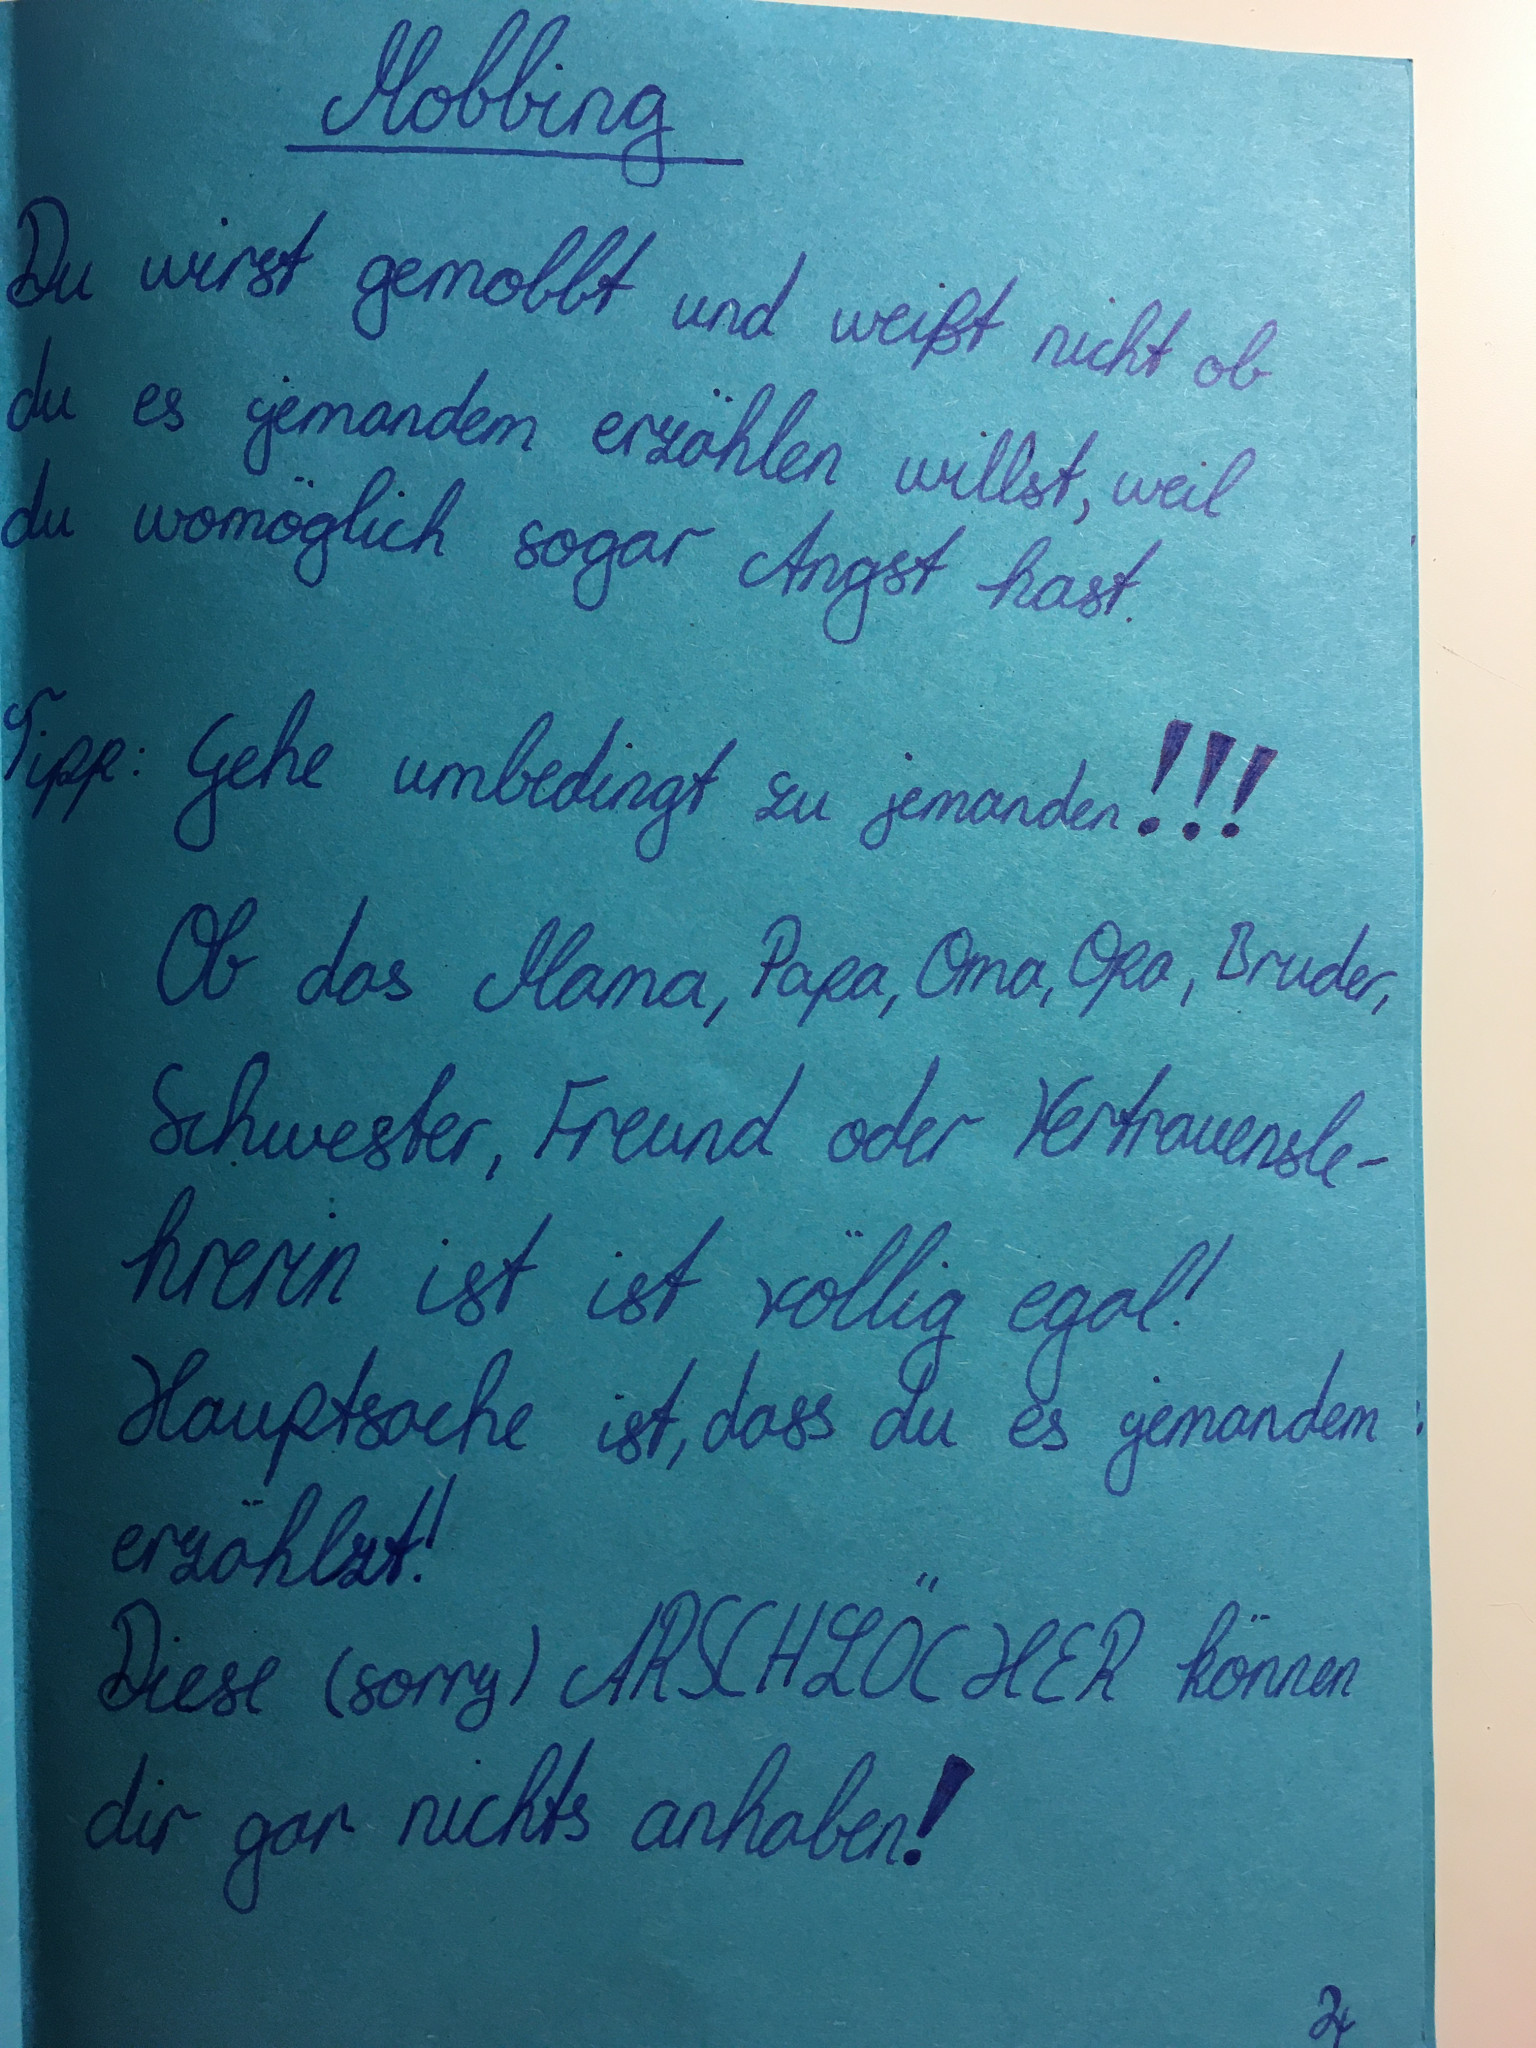 Mobbing
Du wirst gemobbt und weißt nicht ob
du es jemandem erzählen willst, weil
du womöglich sogar Angst hast.
Tipp: Gehe umbedingt zu jemanden!!!
Ob das Mama, Papa, Oma, Opa, Bruder,
Schwester, Freund oder Vertrauensle-
hrerin ist ist völlig egal!
Hauptsache ist, dass du es jemandem
erzählzt!
Diese (sorry) ARSCHLÖCHER können
dir gar nichts anhaben!